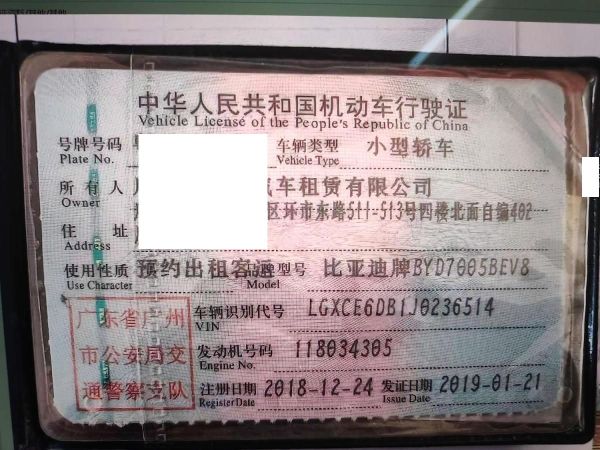 中华人民共和国机动车行驶证
Vehicle License of the People's Republic of China
号牌号码 车辆类型 小型轿车
Plate No. Vehicle Type
所有人 车租赁有限公司
Owner
区环市东路511-513号四楼北面自编402
住址
Address
使用性质 预约出租客运 品牌型号 比亚迪牌BYD7005BEV8
Use Character Model
车辆识别代号 LGXCE6DB1J0236514
VIN
发动机号码 118034305
Engine No.
注册日期 2018-12-24 发证日期 2019-01-21
Register Date Issue Date
广东省广州
市公安局交
通警察支队